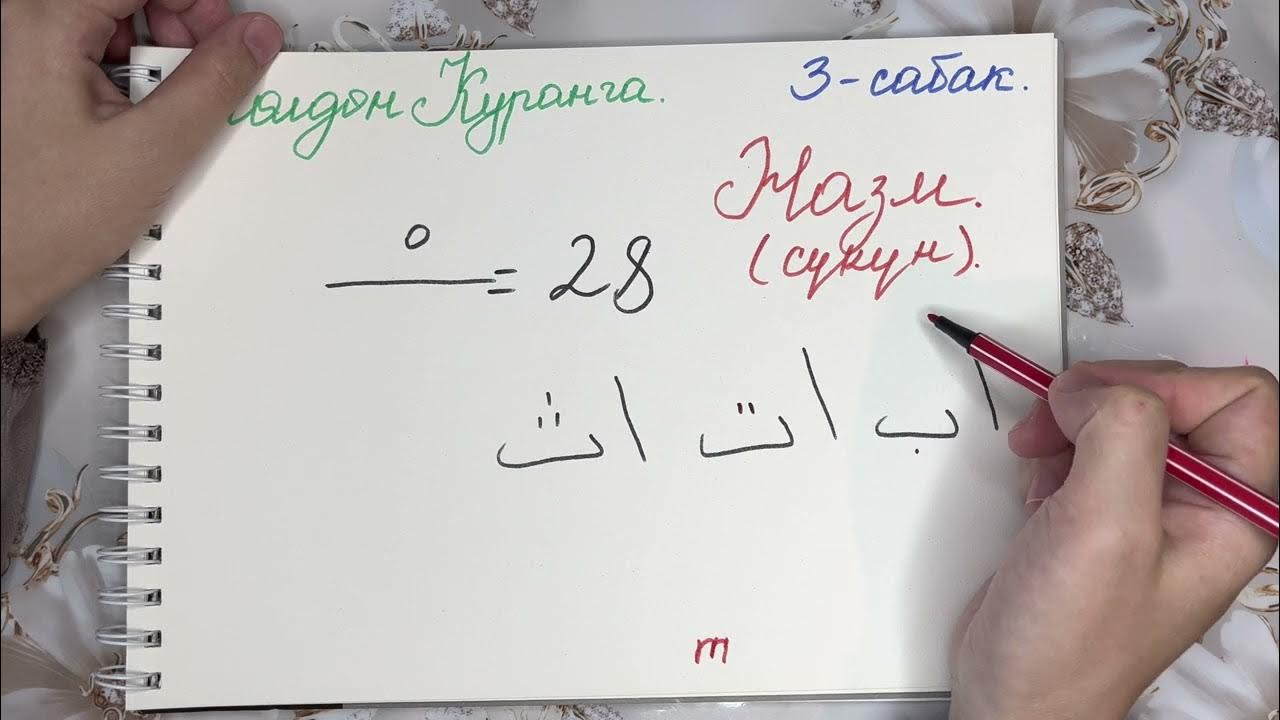 өлдөн Куранга. 3-сабак.
Жазм.
(сукун).
ْ = 28
اب ات اث
т